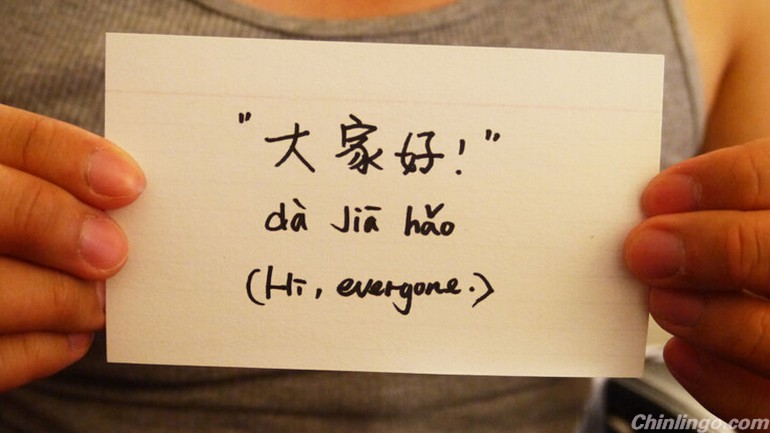 "大家好！"
dà Jiā hǎo
(Hi, everyone.)
Chinlingo.com